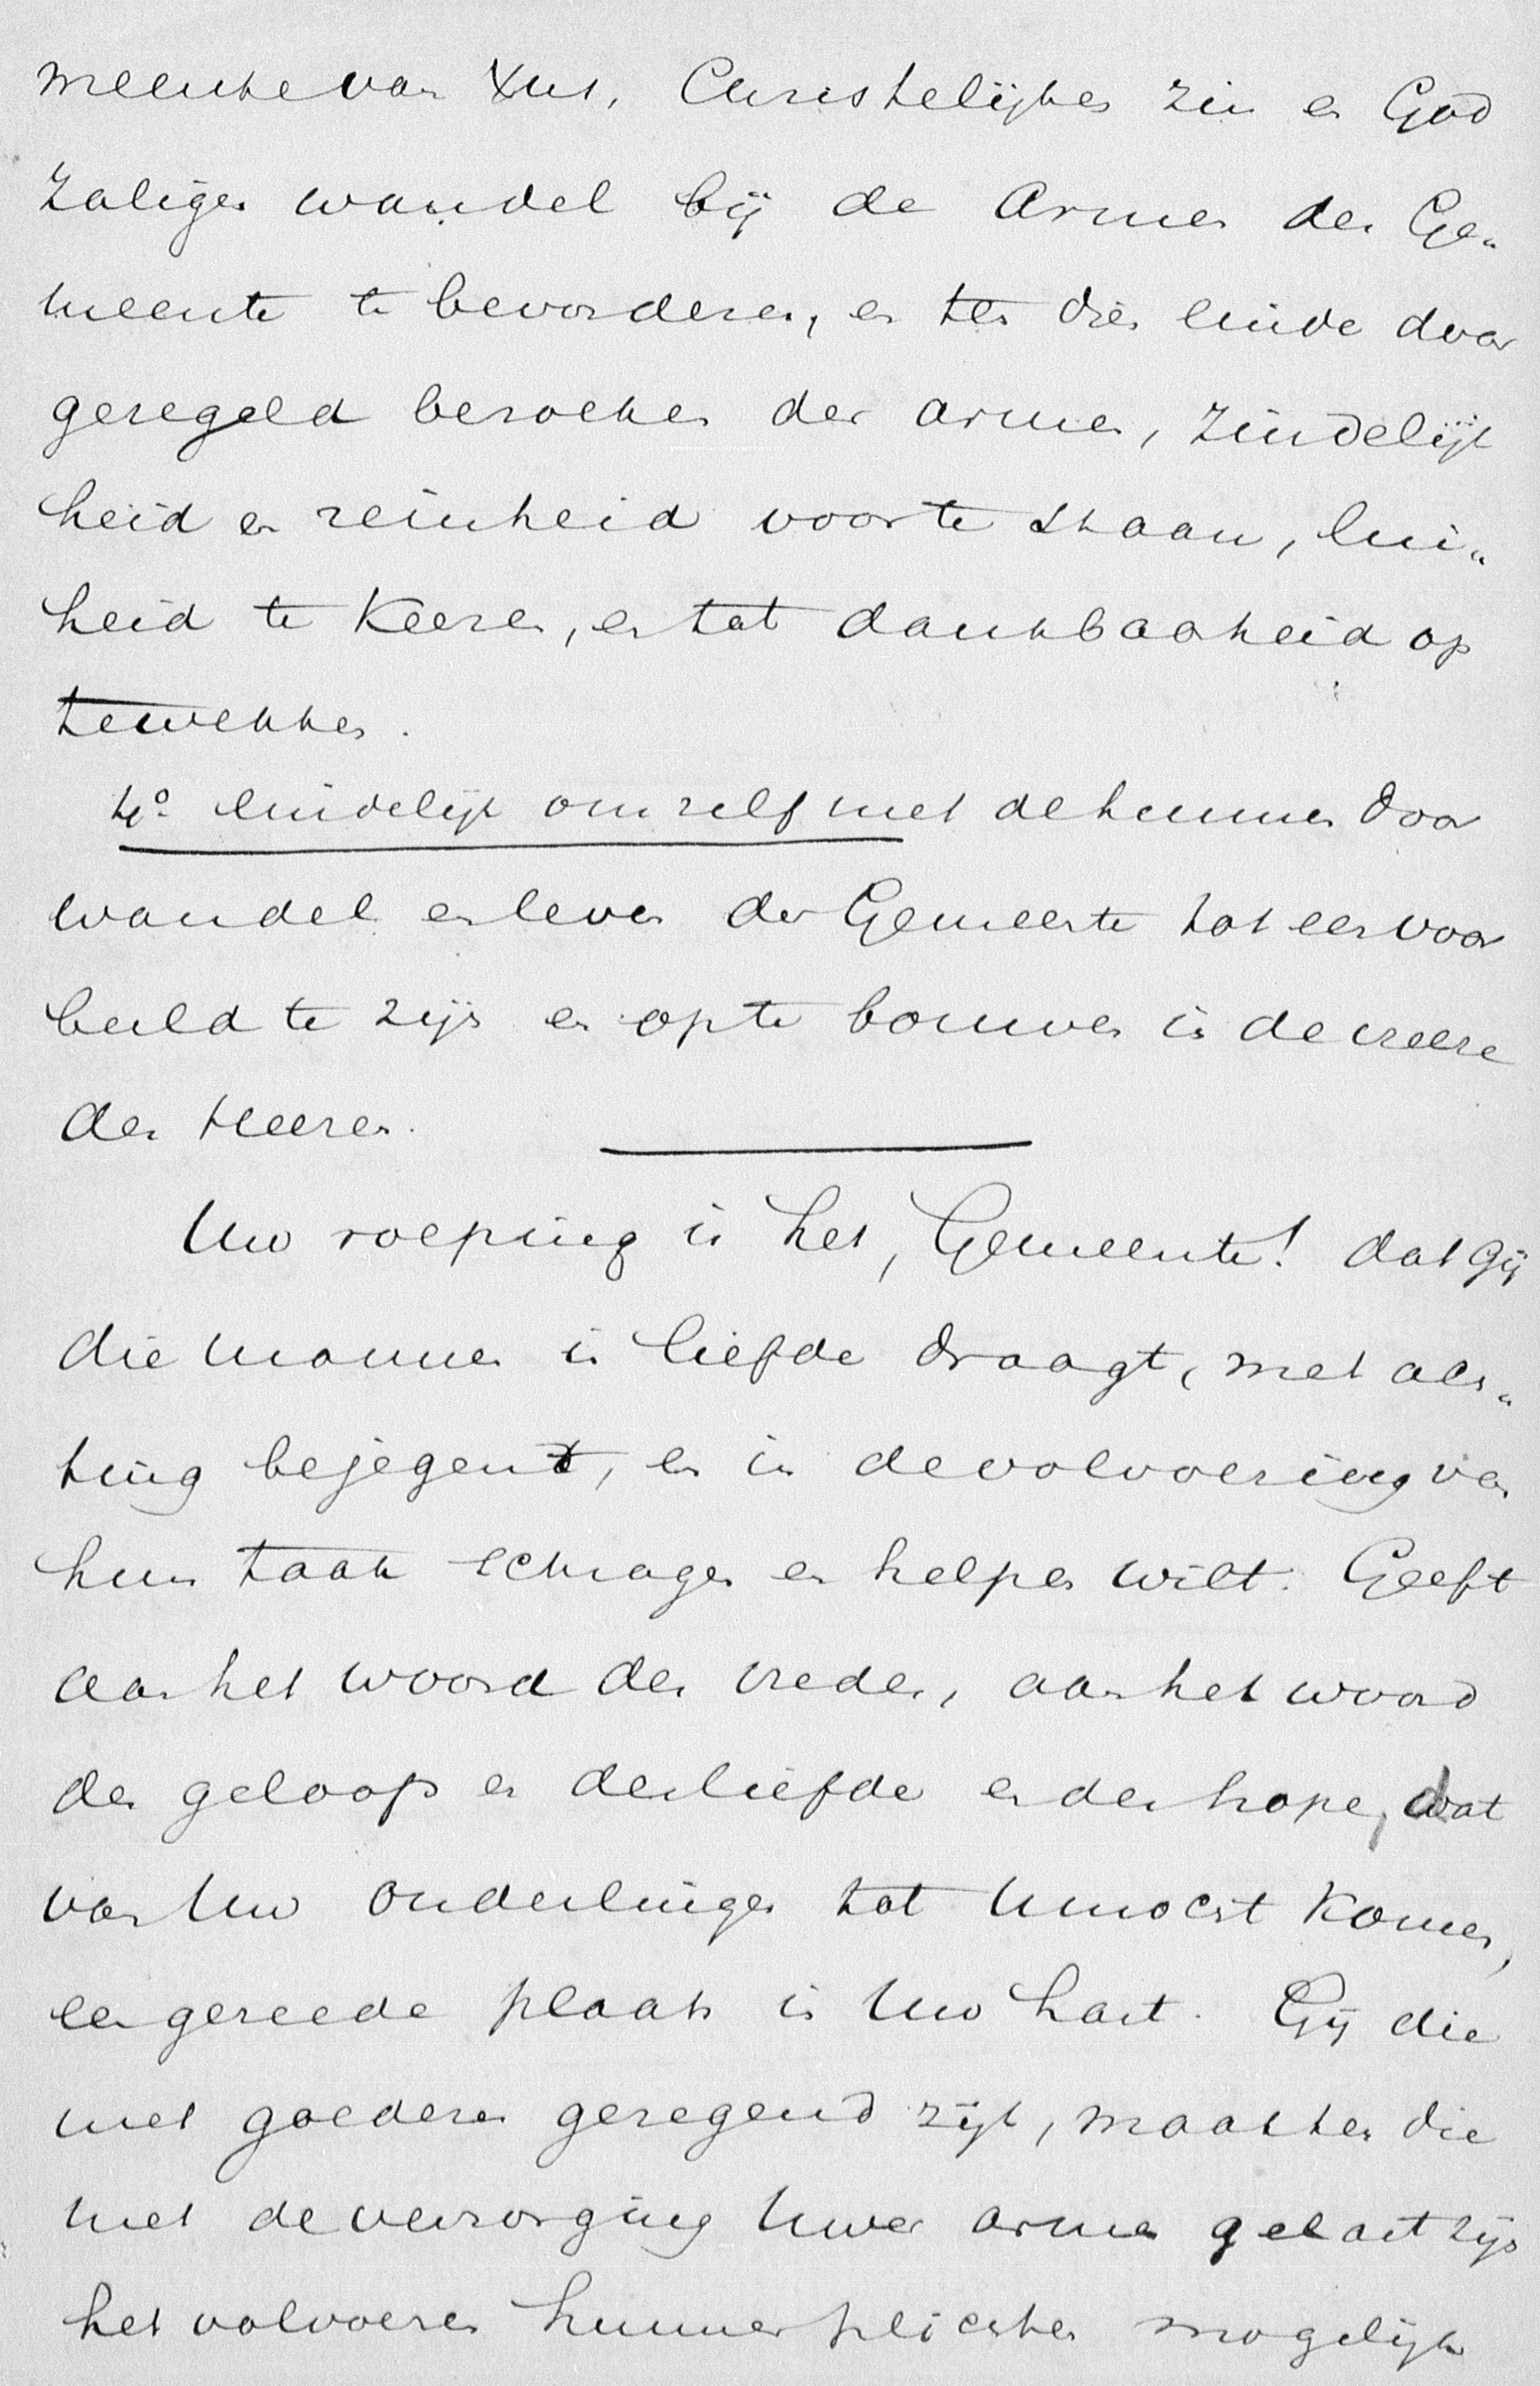 meente van Xus, Christelijken zin en God
zaligen wandel bij de Armen der Ge„
meente te bevorderen, en ten dien einde door
geregeld bezoeken der armen, zindelijk
heid en reinheid voor te staan, lui„
heid te keeren, en tot dankbaarheid op
tewekken.
4o. eindelijk om zelf met de hunnen door
wandel en leven der Gemeente tot een voor
beeld te zijn en op te bouwen in de vreeze
des Heeren.
Uw roeping is het, Gemeente! dat gij
die mannen in liefde draagt, met ach„
ting bejegent, en in de volvoering van
hun taak schragen en helpen wilt. Geeft
aan het woord des vredes, aan het woord
des geloofs en der liefde en der hope, dat
van Uw Ouderlingen tot U mocht komen,
een gereede plaats in Uw hart. Gij die
met goederen gezegend zijt, maakt hen die
met de verzorging Uwer armen gelast zijn
het volvoeren hunner plichten mogelijk